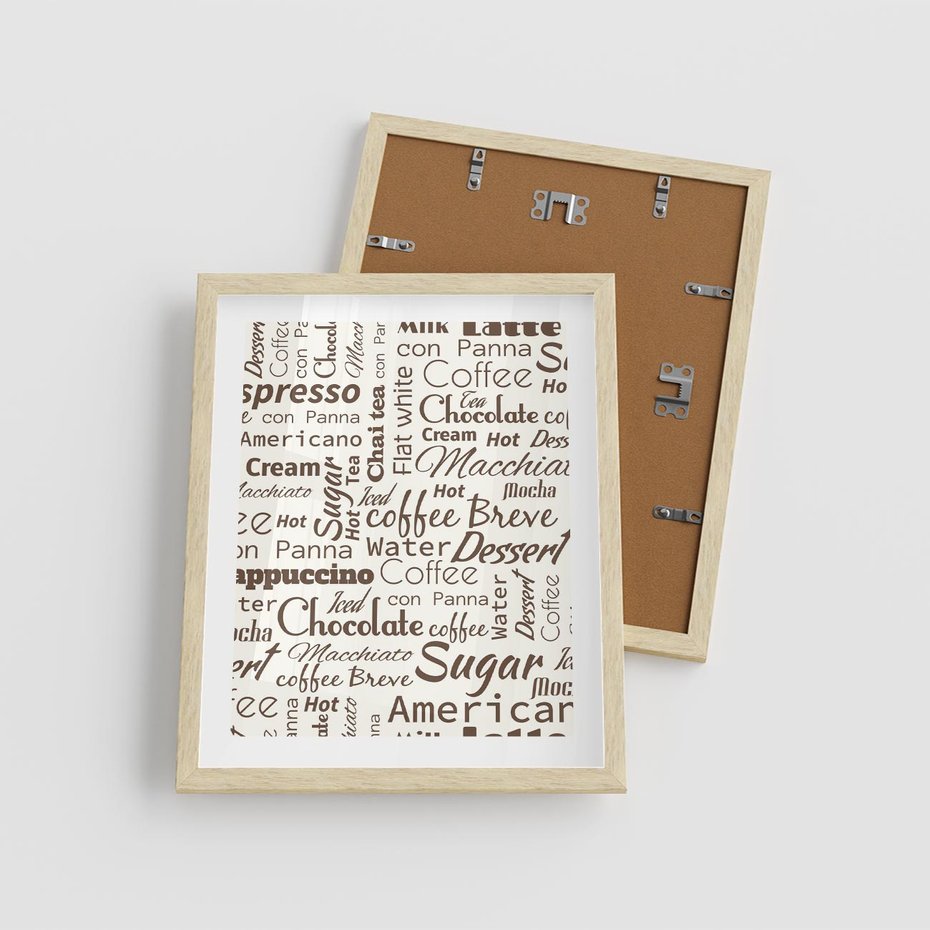 Dessert
Coffee
con Pa
Chocol
Macc
con Par
Milk Latte
con Panna
Coffee
Ho
spresso
Chai tea
Flat white
Tea
Chocolate
con Panna
Americano
Cream Hot Dess
Cream
Sugar
Tea
Macchiat
Macchiato
Iced
Hot
Mocha
ee Hot
Hot
coffee Breve
on Panna
Water Dessert
appuccino
Coffee
ter
Iced
con Panna
Water
Dessert
Coffee
ocha
Chocolate
coffee
ert
Macchiato
Sugar
coffee Breve
Moc
fee
anna
Hot
ate
hiato
anna
American